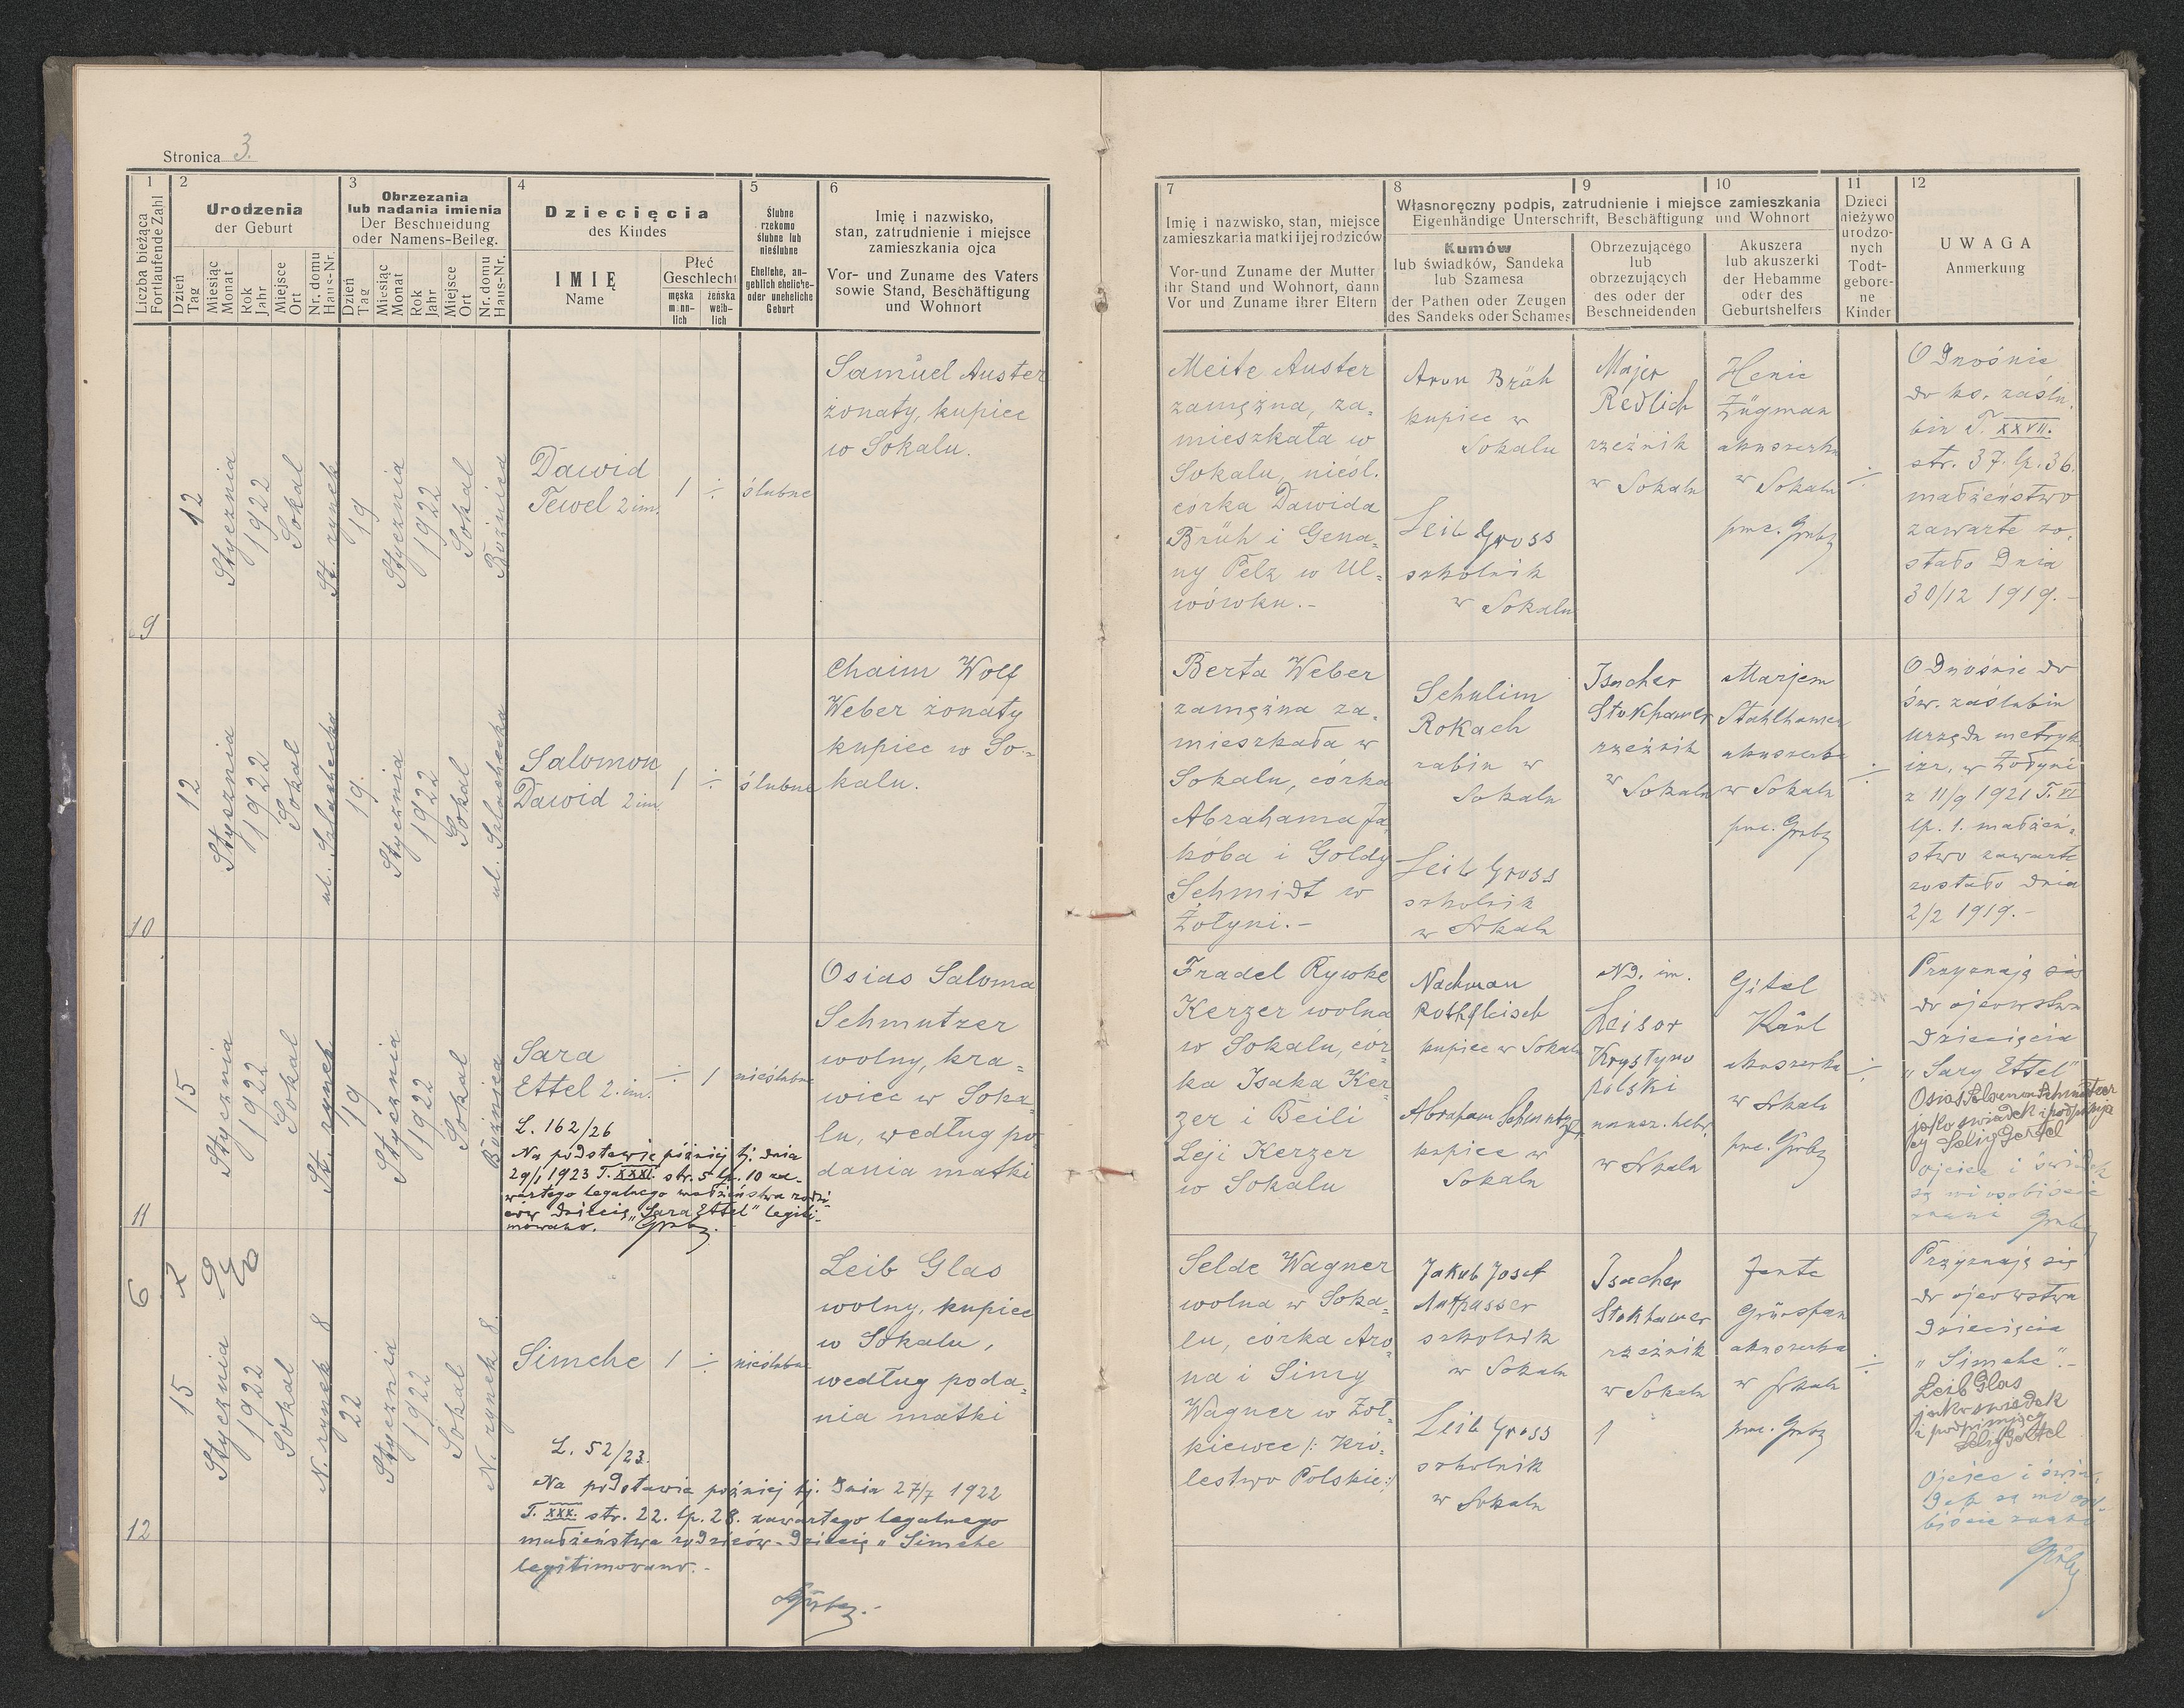 Stronica 3.
1
Liczba bieżąca
Fortlaufende Zahl
2
Urodzenia
der Geburt
Dzień
Tag
Miesiąc
Monat
Rok
Jahr
Miejsce
Ort
Nr. domu
Haus-Nr.
3
Obrzezania
lub nadania imienia
Der Beschneidung
oder Namens-Beileg.
Dzień
Tag
Miesiąc
Monat
Rok
Jahr
Miejsce
Ort
Nr. domu
Haus-Nr.
4
Dziecięcia
des Kindes
IMIĘ
Name
Płeć
Geschlecht
męska
männ-
lich
żeńska
weib-
lich
5
Ślubne
rzekomo
ślubne lub
nieślubne
Eheliche, an-
geblich eheliche-
oder uneheliche
Geburt
6
Imię i nazwisko,
stan, zatrudnienie i miejsce
zamieszkania ojca
Vor- und Zuname des Vaters
sowie Stand, Beschäftigung
und Wohnort
7
Imię i nazwisko, stan, miejsce
zamieszkania matki i jej rodziców
Vor-und Zuname der Mutter
ihr Stand und Wohnort, dann
Vor und Zuname ihrer Eltern
8
9
10
Własnoręczny podpis, zatrudnienie i miejsce zamieszkania
Eigenhändige Unterschrift, Beschäftigung und Wohnort
Kumów
lub świadków, Sandeka
lub Szamesa
der Pathen oder Zeugen
des Sandeks oder Schames
Obrzezującego
lub
obrzezujących
des oder der
Beschneidenden
Akuszera
lub akuszerki
der Hebamme
oder des
Geburtshelfers
11
Dzieci
nieżywo
urodzo-
nych
Todt-
gebore-
ne
Kinder
12
UWAGA
Anmerkung
9
12
Stycznia
1922
Sokal
St. rynek
19
Stycznia
1922
Sokal
Bożnica
Dawid
Tewel 2 im.
1
÷
ślubne
Samuel Auster
żonaty, kupiec
w Sokalu.
Meite Auster
zamężna, za-
mieszkała w
Sokalu, nieśl.
córka Dawida
Brüh i Gena-
ny Pelz w Ul-
wówku.-
Aron Brüh
kupiec w
Sokalu
Leib Gross
szkolnik
w Sokalu
Majer
Redlich
rzeźnik
w Sokalu
Henie
Zügman
akuszerka
w Sokalu
÷
Odnośnie
do ks. zaślu-
bin T. XXVII.
str. 37. lp. 36.
małżeństwo
zawarte zo-
stało dnia
30/12 1919.-
10
12
Stycznia
1922
Sokal
ul. Szlachecka
19.
Stycznia
1922
Sokal
ul. Szlachecka
Salomon
Dawid 2 im.
1
÷
ślubne
Chaim Wolf
Weber żonaty
kupiec w So-
kalu.
Berta Weber
zamężna za-
mieszkała w
Sokalu, córka
Abrahama Ja-
kóba i Goldy
Schmidt w
Żołyni.-
Schulim
Rokach
rabin w
Sokalu
Leib Gross
szkolnik
w Sokalu
Isacher
Stokhamer
rzeźnik
w Sokalu
Marjem
Stahlhamer
akuszerka
w Sokalu
÷
Odnośnie do
św. zaślubin
urzędu metryk
izr. w Żołyni
z 11/9 1921 T. VI
lp. 1. małżeń-
stwo zawarte
zostało dnia
2/2 1919.-
11
15
Stycznia
1922
Sokal
St. rynek
19
Stycznia
1922
Sokal
Bożnica
Sara
Ettel 2. im.
÷
1
nieślubne
L. 162/26
Na podstawie później tj. dnia
29/1 1923 T. XXXI. str. 5 lp. 10 za-
wartego legalnego małżeństwa rodzi-
ców dziecię „Sara Ettel" legiti-
mowano.
Osias Saloma
Schmutzer
wolny, kra-
wiec w Soka-
lu, według po
dania matki
Fradel Rywke
Kerzer wolna
w Sokalu, cór-
ka Isaka Ker-
zer i Beili
Leji Kerzer
w Sokalu
Nachman
Rothfleisch
kupiec w Sokalu
Abraham Schmutzer
kupiec w
Sokalu
Nd. im.
Leisor
Krystyno
polski
naucz. hebr.
w Sokalu
Gitel
Karl
akuszerka
w Sokalu
÷
Przyznaję się
do ojcowstwa
dziecięcia
„Sary Ettel"
Osias Salomon Schmutzer
jako świadek i podpisują
cy Selig Gertel
ojciec i świadek
są mi osobiście
znani
12
6
15
Stycznia
1922
Sokal
N. rynek 8
22
Stycznia
1922
Sokal
N. rynek 8.
Simche
1
÷
nieślubne
L. 52/23.
Na podstawie później tj. dnia 27/7 1922
T. XXX. str. 22. lp. 28. zawartego legalnego
małżeństwa rodziców - dziecię „Simche
legitimowano.-
Leib Glas
wolny, kupiec
w Sokalu,
według poda-
nia matki
Selde Wagner
wolna w Soka-
lu, córka Aro-
na i Simy
Wagner w Żół-
kiewce /: Kró-
lestwo Polskie:/
Jakub Josef
szkolnik
w Sokalu
Leib Gross
szkolnik
w Sokalu
Isacher
Stokhamer
rzeźnik
w Sokalu
Jente
Grünspan
akuszerka
w Sokalu
÷
Przyznaję się
do ojcowstwa
dziecięcia
„Simche".-
Leib Glas
jako swiadek
i podpisujący
Selig Gertel
Ojciec i świa-
dek są mi oso-
biście znani